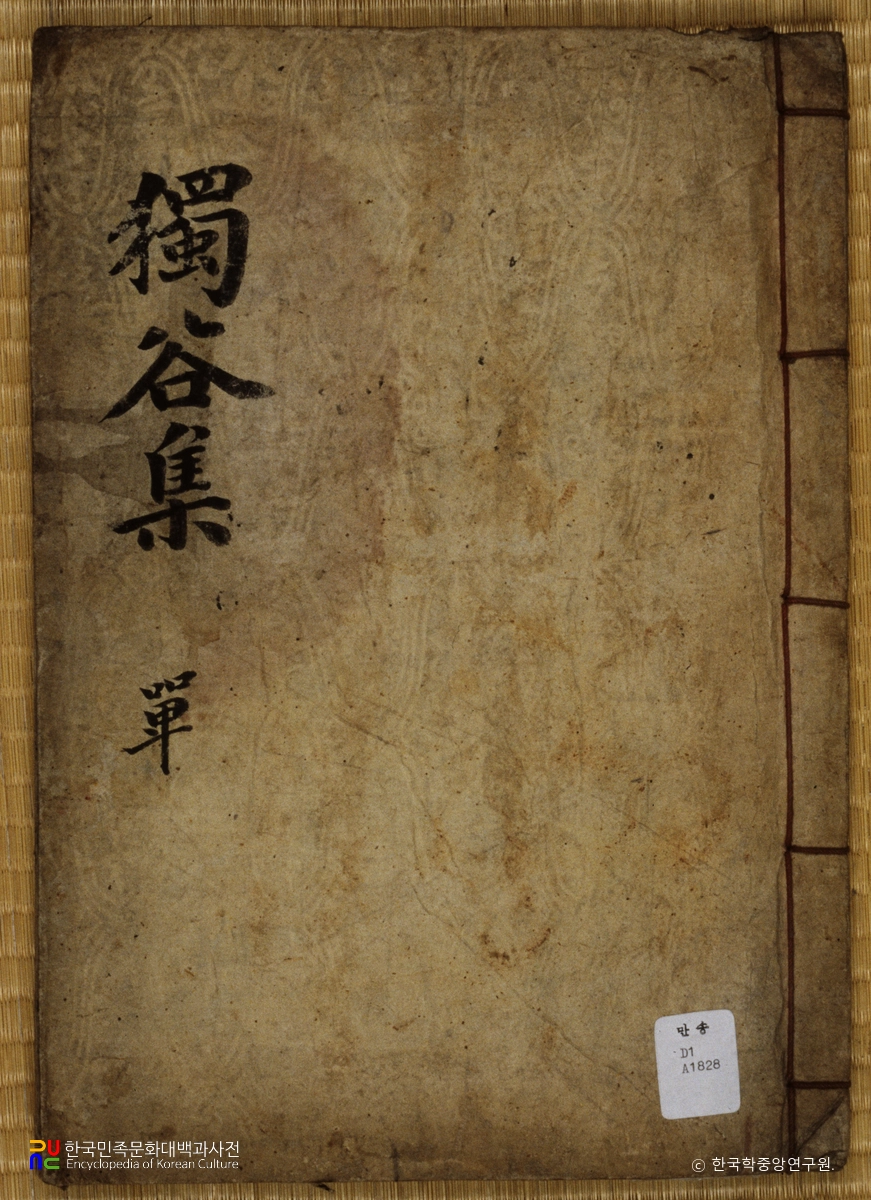 獨谷集
單
만송
D1
A1828
한국민족문화대백과사전
Encyclopedia of Korean Culture
© 한국학중앙연구원.